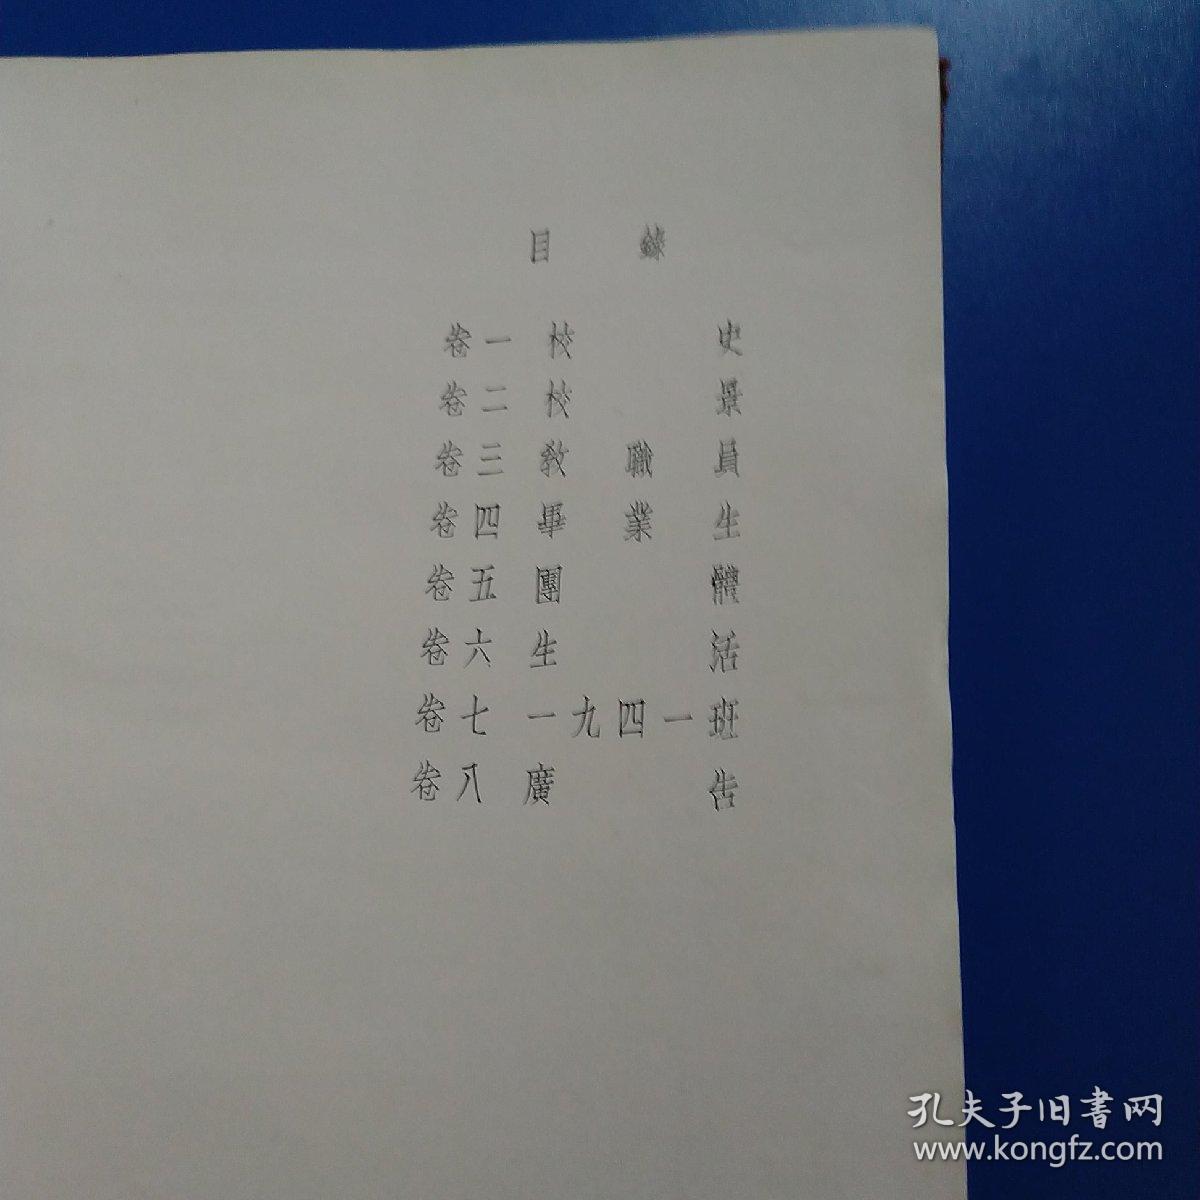 目錄
卷一 校史
卷二 校景
卷三 教職員
卷四 畢業生
卷五 團體
卷六 生活
卷七 一九四一班
卷八 廣告
孔夫子旧書网
www.kongfz.com